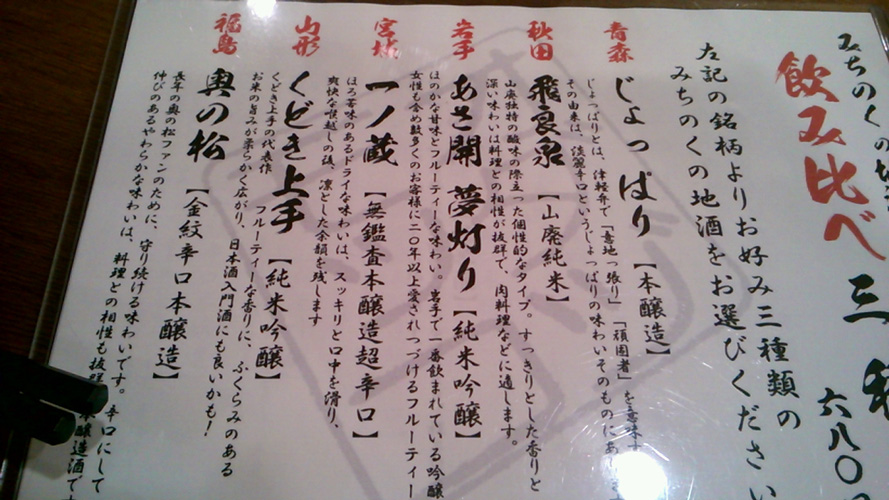 みちのくの地
飲み比べ三種
六八〇
左記の銘柄よりお好み三種類の
みちのくの地酒をお選びください
青森
じょっぱり【本醸造】
じょっぱりとは、津軽弁で「意地っ張り」「頑固者」を意味す
その由来は、淡麗辛口というじょっぱりの味わいそのものにあ
秋田
飛良泉【山廃純米】
山廃独特の酸味の際立った個性的なタイプ。すっきりとした香りと
深い味わいは料理との相性が抜群で、肉料理などに適します。
岩手
あさ開 夢灯り【純米吟醸】
ほのかな甘味とフルーティーな味わい。岩手で一番飲まれている吟醸
女性も含め数多くのお客様に二〇年以上愛されつづけるフルーティー
宮城
一ノ蔵【無鑑査本醸造超辛口】
ほろ苦味のあるドライな味わいは、スッキリと口中を滑り、
爽快な喉越しの後、凛とした余韻を残します
山形
くどき上手【純米吟醸】
くどき上手の代表作 フルーティーな香りに、ふくらみのある
お米の旨みが柔らかく広がり、日本酒入門酒にも良いかも!
福島
奥の松【金紋辛口本醸造】
長年の奥の松ファンのために、守り続ける味わいです。辛口にして
伸びのあるやわらかな味わいは、料理との相性も抜群 本醸造酒で